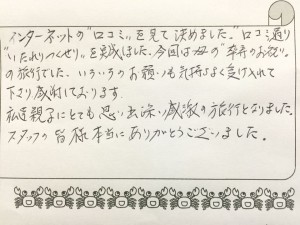 インターネットの"口コミ"を見て決めました。"口コミ通り
"いたれりつくせり"を実感しました。今回は母の"卒寿のお祝い"
の旅行でした。いろいろのお願いも気持ちよく受け入れて
下さり感謝しております。
私達親子にとても思い出深い感激の旅行となりました。
スタッフの皆様本当にありがとうございました。